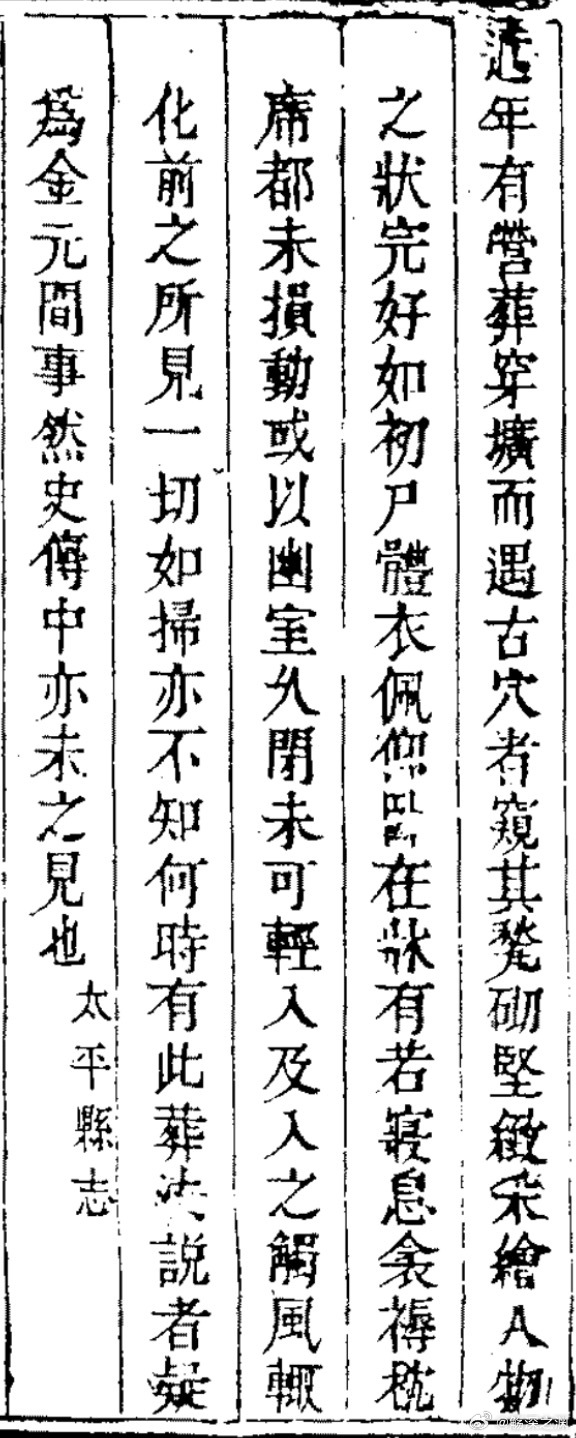 近年有營葬穿壙而遇古穴者窺其甃砌堅緻朱繪人物
之狀完好如初尸體衣佩儼在牀有若寢息衾褥枕
席都未損動或以幽室久閉未可輕入及入之觸風輒
化前之所見一切如掃亦不知何時有此葬法說者疑
為金元間事然史傳中亦未之見也
太平縣志